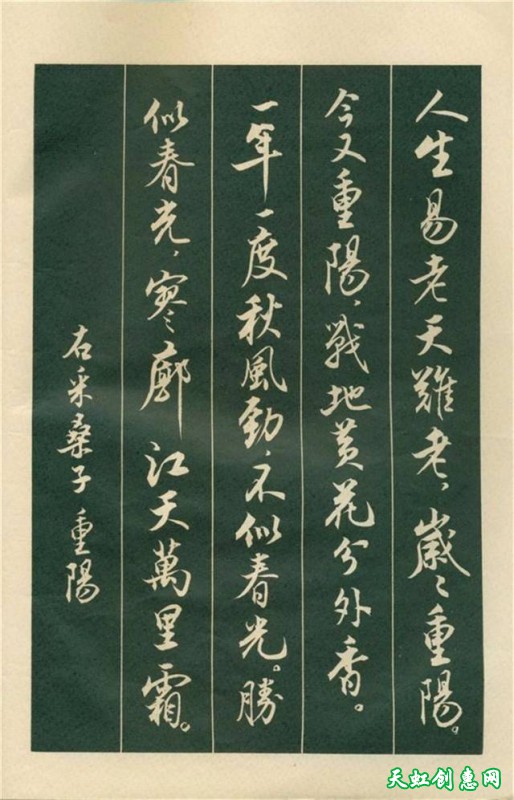 人生易老天難老、歲〻重陽。
今又重陽、戰地黄花分外香。
一年一度秋風勁、不似春光。勝
似春光、寥廓江天萬里霜。
右采桑子 重陽
天虹创惠网